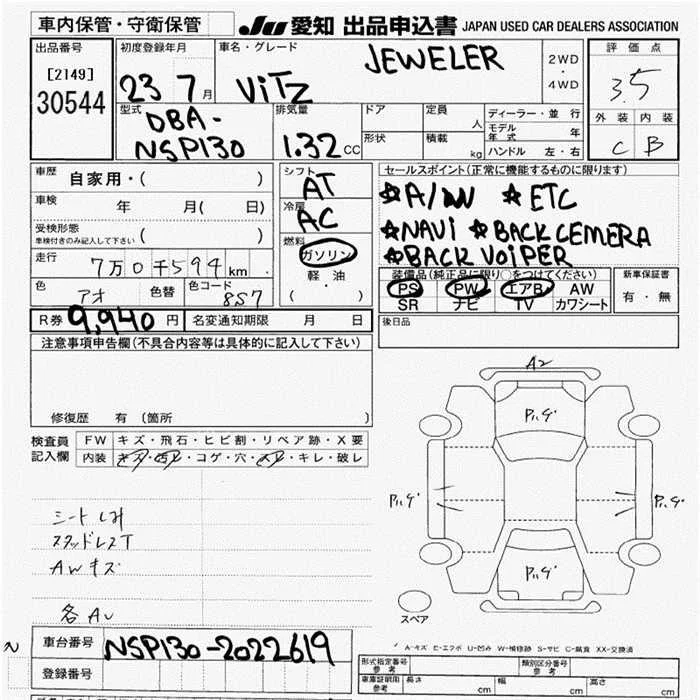 車内保管・守衛保管
JU 愛知 出品申込書 JAPAN USED CAR DEALERS ASSOCIATION
出品番号
[2149]
30544
初度登録年月
23 7月
車名・グレード
ViTZ
JEWELER
2WD
・
4WD
評価点
3.5
外装 内装
C B
型式
DBA-
NSP130
排気量
1.32 CC
ドア
形状
定員 人
積載 kg
ディーラー・並行
モデル年式 年
ハンドル 左・右
車歴 自家用・( )
車検 年 月( 日)
受検形態
車検付きのみ記入して下さい ( )
走行 7万0千594 km
色 アオ
色替
色コード 8S7
シフト AT
冷房 AC
燃料
ガソリン
軽油
( )
R券 9,940 円
名変通知期限 月 日
セールスポイント(正常に機能するものに限ります)
☆A/W ☆ETC
☆NAVI ☆BACK CEMERA
☆BACK VOIPER
装備品(純正品に限り○をつけてください)
PS PW エアB AW
SR ナビ TV カワシート
新車保証書
有・無
後日品
注意事項申告欄(不具合内容等は具体的に記入して下さい)
修復歴 有(箇所
検査員
記入欄
FW キズ・飛石・ヒビ割・リペア跡・X要
内装 キズ・汚レ・コゲ・穴・スレ・キレ・破レ
シートしみ
スタッドレスT
AWキズ
各AU
A2
スペア
A-キズ E-エクボ U-凹み W-補修跡 S-サビ C-腐食 XX-交換済
車台番号 NSP130-2022619
登録番号
形式指定番号
参考
類別区分番号
参考
車庫証明用
参考
長さ cm
幅 cm
高さ cm